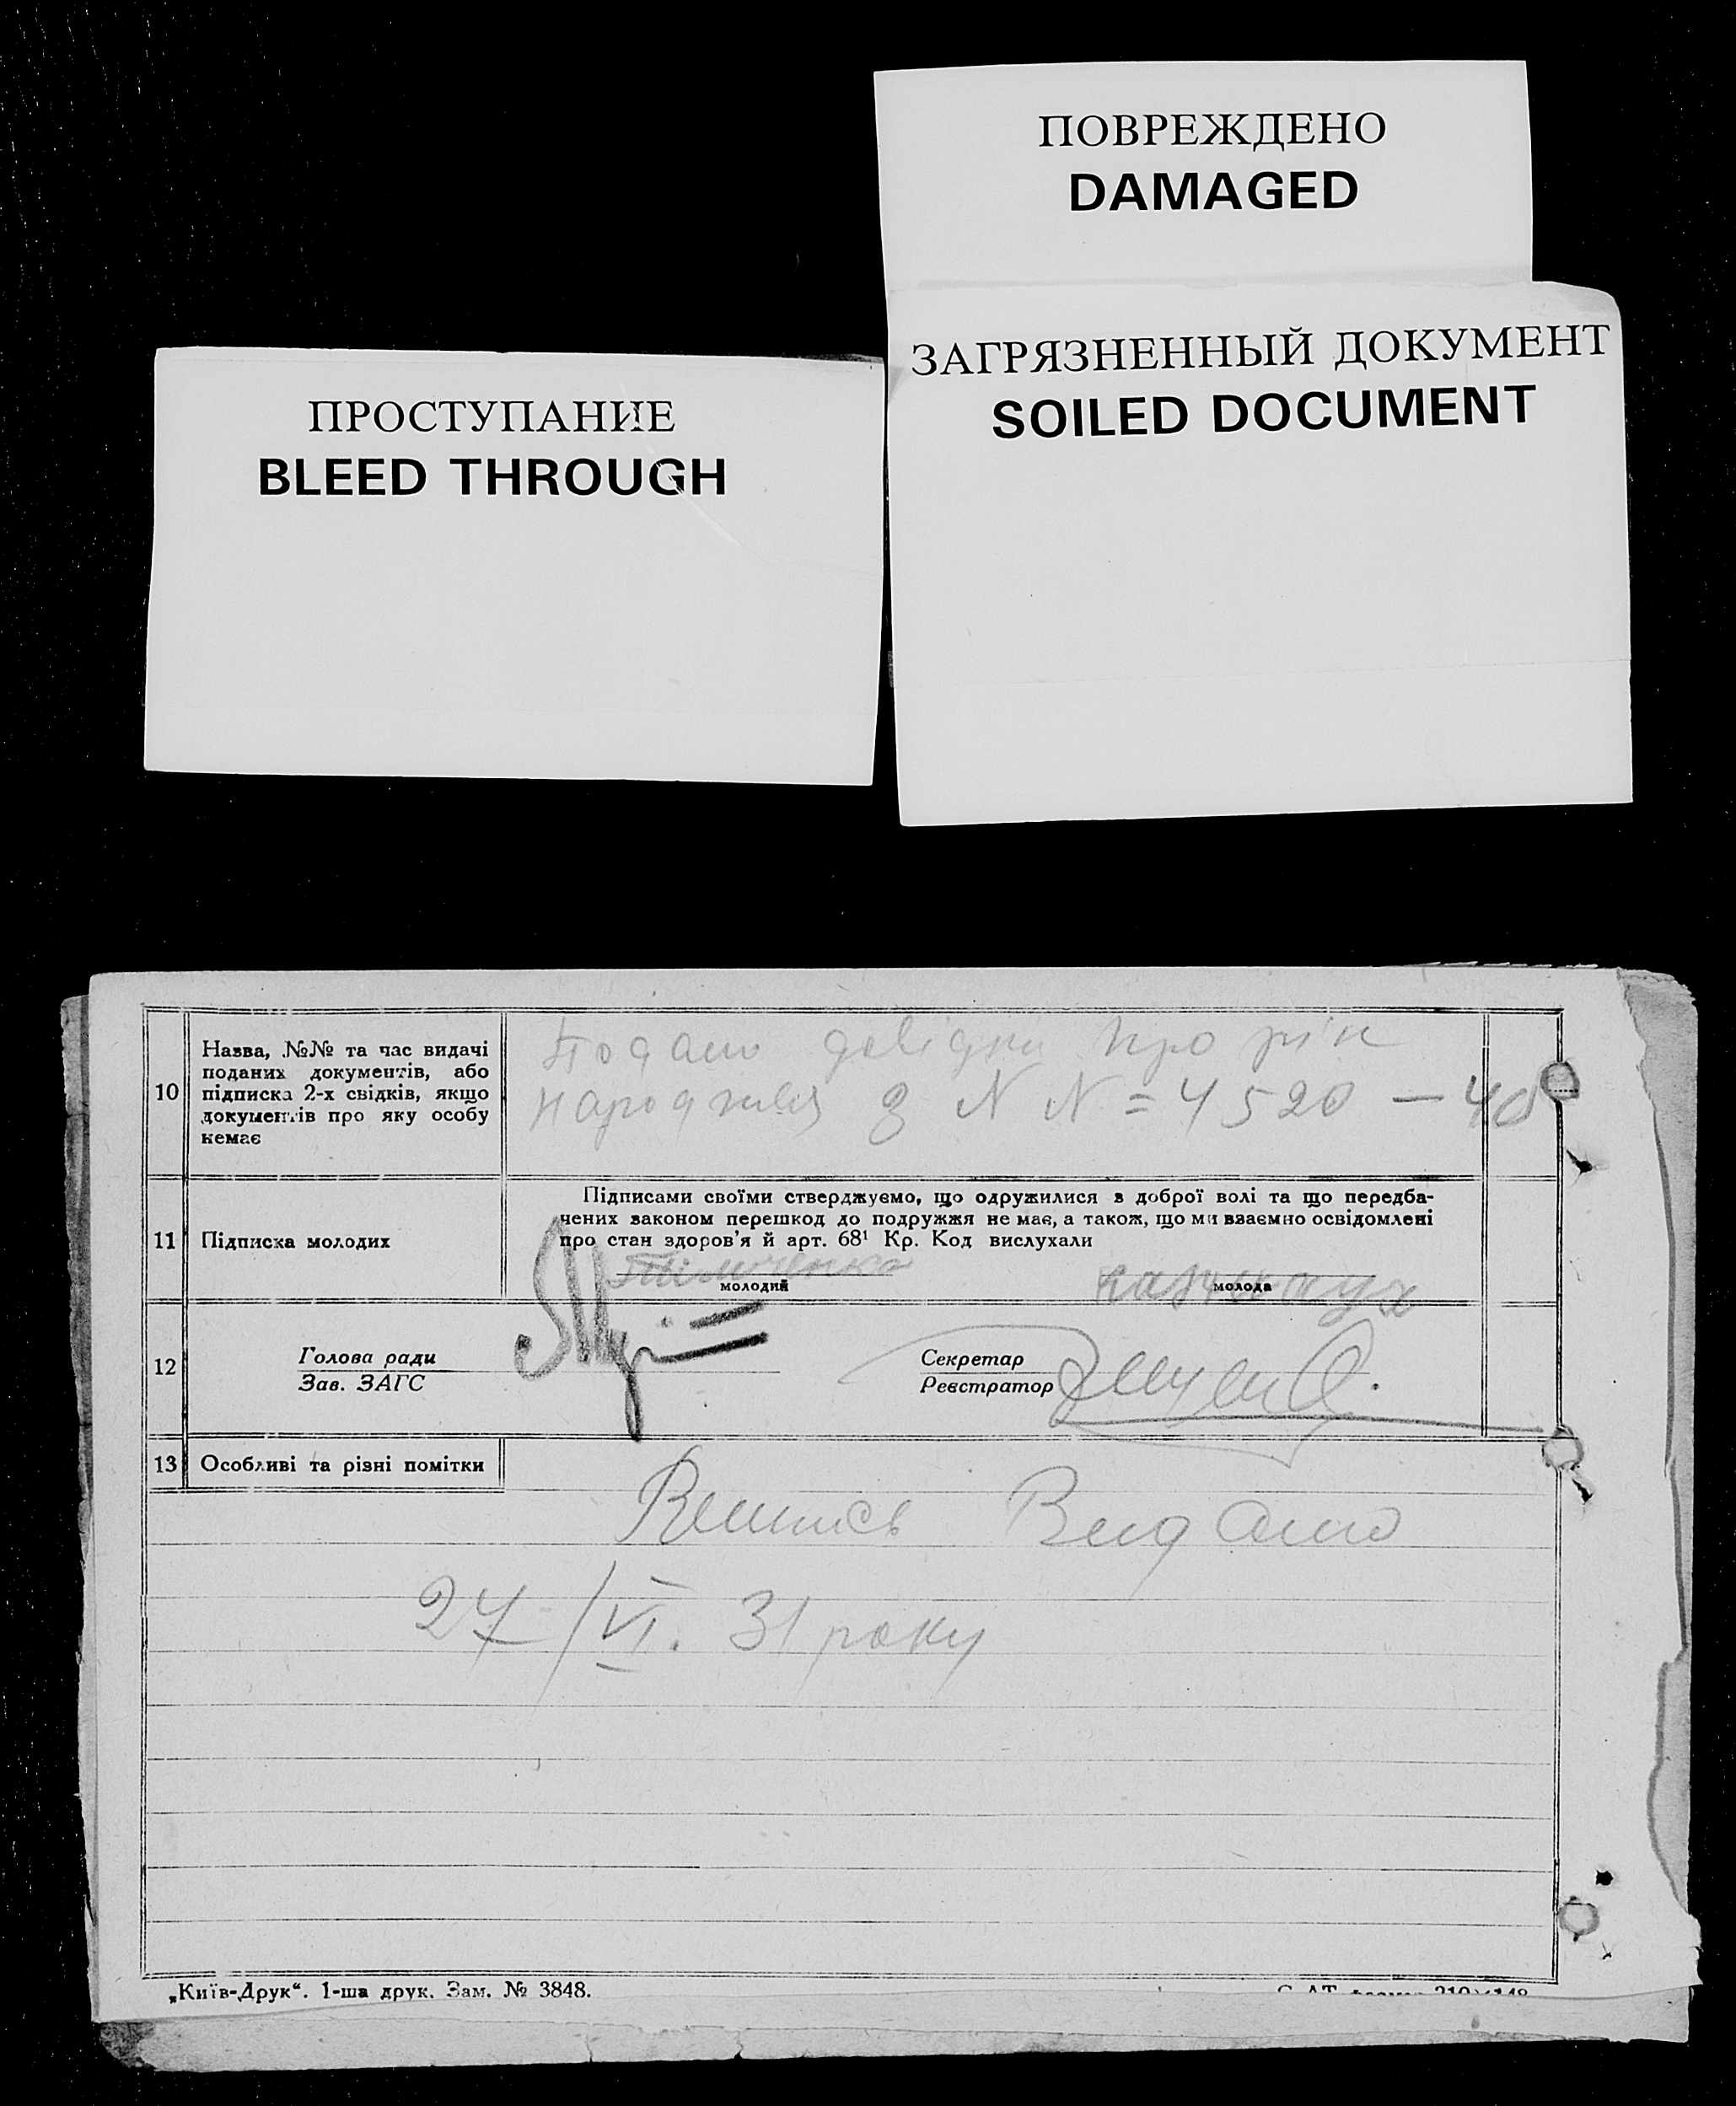 ПОВРЕЖДЕНО
DAMAGED
ЗАГРЯЗНЕННЫЙ ДОКУМЕНТ
SOILED DOCUMENT
ПРОСТУПАНИЕ
BLEED THROUGH
10
Назва, №№ та час видачі
поданих документів, або
підписка 2-х свідків, якщо
документів про яку особу
немає
Подано довідки про рік
народження з N N = 4520 — 40
11
Підписка молодих
Підписами своїми стверджуємо, що одружилися з доброї волі та що передба-
чених законом перешкод до подружжя не має, а також, що ми взаємно освідомлені
про стан здоров'я й арт. 68¹ Кр. Код вислухали
молодий
молода
12
Голова ради
Зав. ЗАГС
Секретар
Реєстратор
13
Особливі та різні помітки
Випись Видано
27/VI. 31 року
„Київ-Друк“. 1-ша друк. Зам. № 3848.